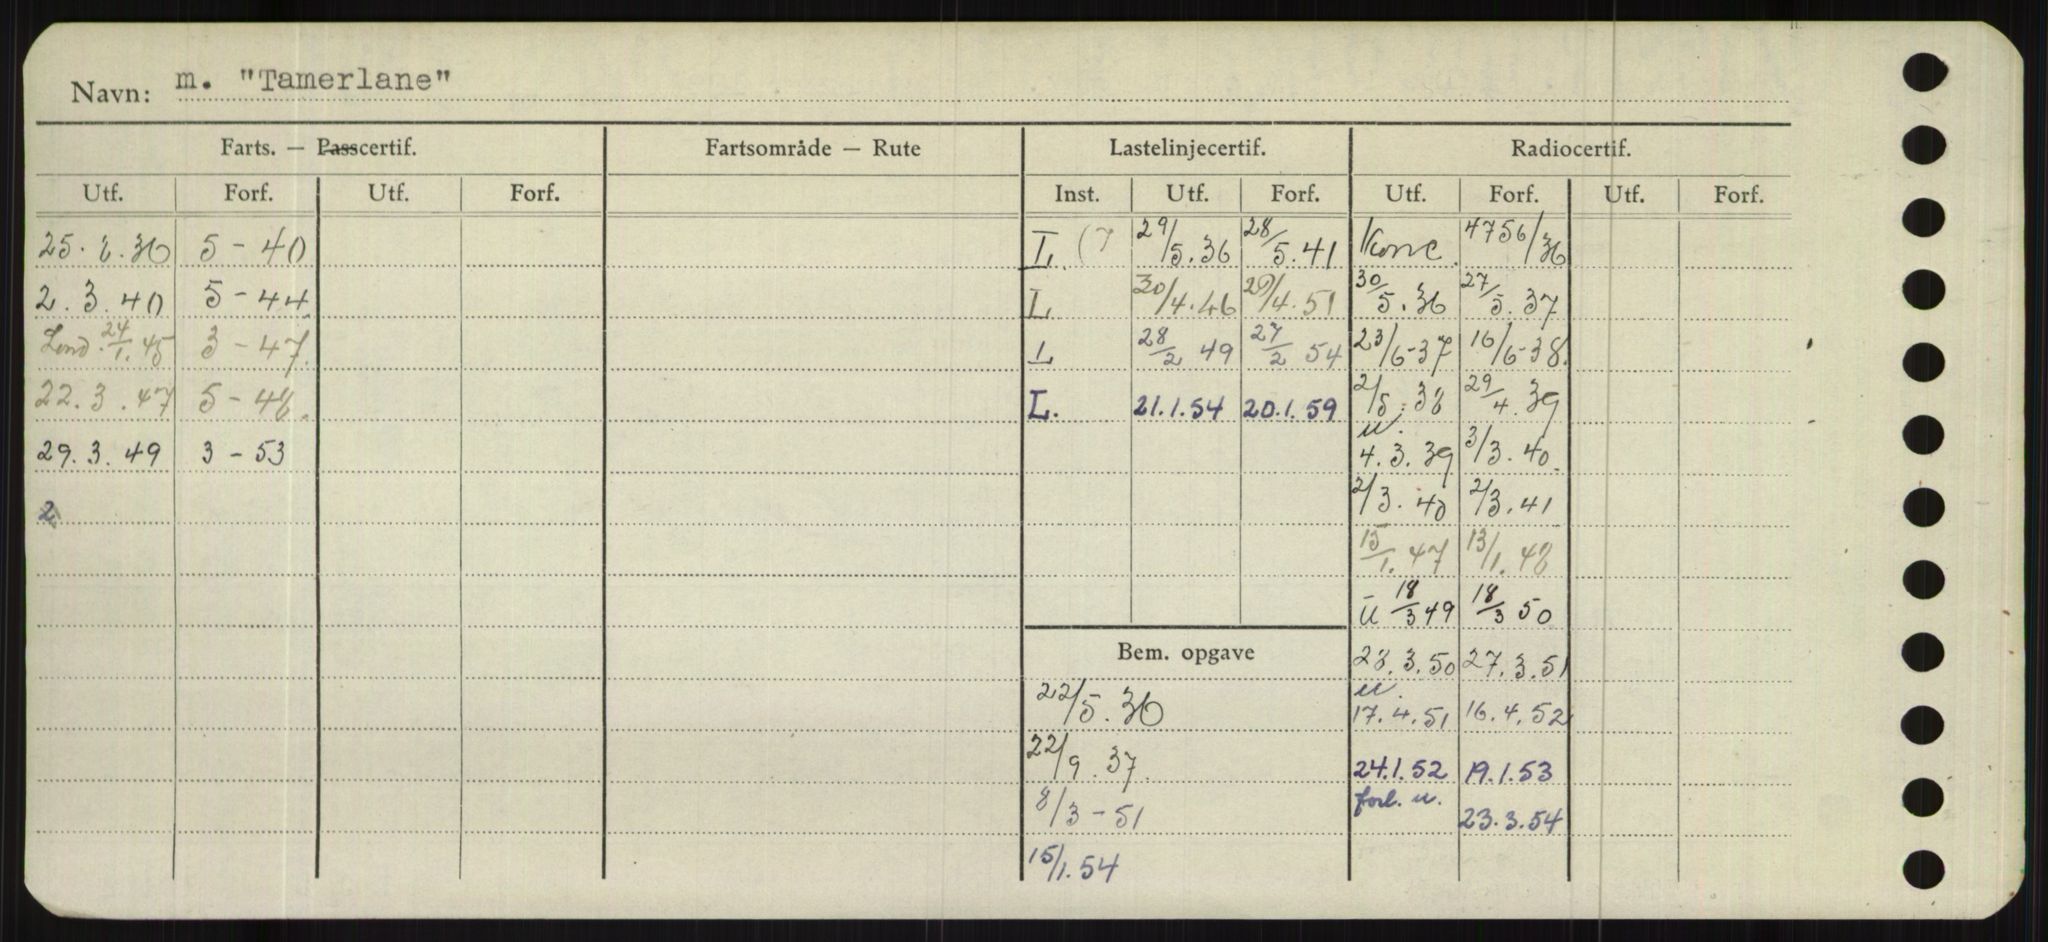 Navn: m. "Tamerlane"
Farts. — Passcertif. Fartsområde — Rute Lastelinjecertif. Radiocertif.
Utf. Forf. Utf. Forf. Inst. Utf. Forf. Utf. Forf. Utf. Forf.
5 - 40 L. 29/5.36 28/5.41 Konc. 4756/36
2.3.40 5 - 44 L 30/4.46 29/4.51 30/5.36 27/5.37
Lond. 24/1.45 3 - 47. L 28/2 49 27/2 54 23/6-37 16/6-38.
22.3.47 5 - 48. L. 21.1.54 20.1.59 2/5.38 29/4.39
29.3.49 3 - 53 u. 4.3.39 3/3.40.
2 2/3.40 2/3.41
15/1.47 13/1.48
u 18/3 49 18/3 50
Bem. opgave 28.3.50 27.3.51
22/5.36 u. 17.4.51 16.4.52
22/9.37. 24.1.52 19.1.53
8/3 - 51 forl. u. 23.3.54
15/1.54